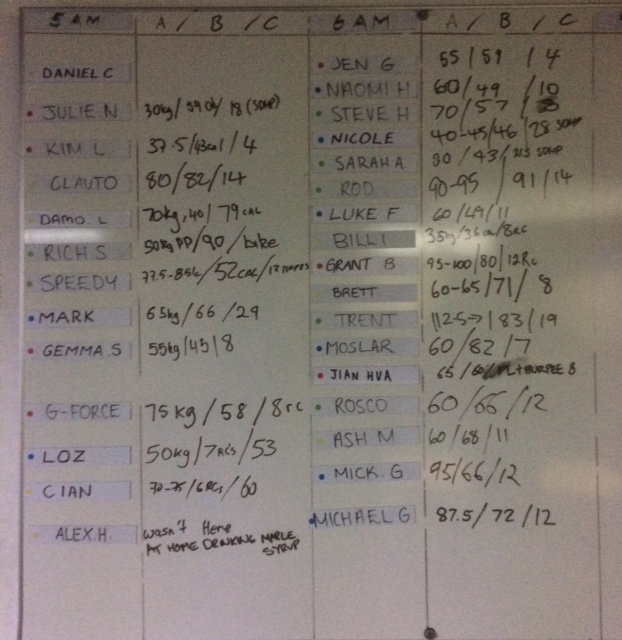 5 AM A / B / C
DANIEL C
JULIE N 30kg / 39 / 18 (50HP)
KIM L 37.5 / 43cal / 4
CLAUTO 80 / 82 / 14
DAMO L 70kg, 40 / 79 CAL
RICH S 50kg PP / 90 / bike
SPEEDY 77.5-85k / 52CAL / 12
MARK 65kg / 66 / 29
GEMMA.S 55kg / 45 / 8
G-FORCE 75 KG / 58 / 8rc
LOZ 50kg / 7RC's / 53
CIAN 70-75 / 6RCs / 60
ALEX.H. wasn't Here
AT HOME DRINKING MAPLE
SYRUP
6 AM A / B / C
JEN G 55 / 59 / 4
NAOMI H 60 / 49 / 10
STEVE H 70 / 57 / 8
NICOLE 40-45 / 46 / 28
SARAH A 30 / 43 /
ROD 90-95 / 91 / 14
LUKE F 60 / 49 / 11
BILLI 35kg / 36 / 8RC
GRANT B 95-100 / 80 / 12Rc
BRETT 60-65 / 71 / 8
TRENT 112.5 / 83 / 19
MOSLAR 60 / 82 / 7
JIAN HUA 65 / 60 / + BURPEE 8
ROSCO 60 / 66 / 12
ASH M 60 / 68 / 11
MICK. G 95 / 66 / 12
MICHAEL G 87.5 / 72 / 12